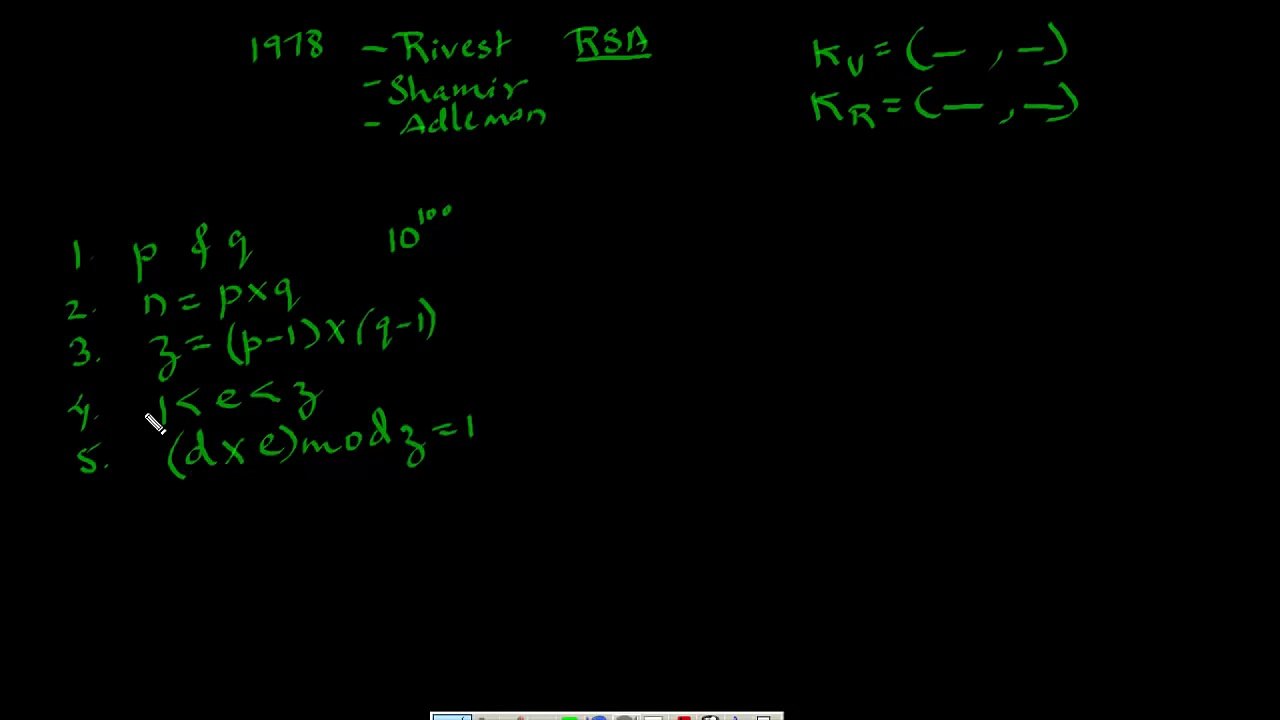 1978 - Rivest RSA
- Shamir
- Adleman
KU = (_ , _)
KR = (_ , _)
1. p & q 10^100
2. n = p x q
3. z = (p-1) x (q-1)
4. 1 < e < z
5. (d x e) mod z = 1